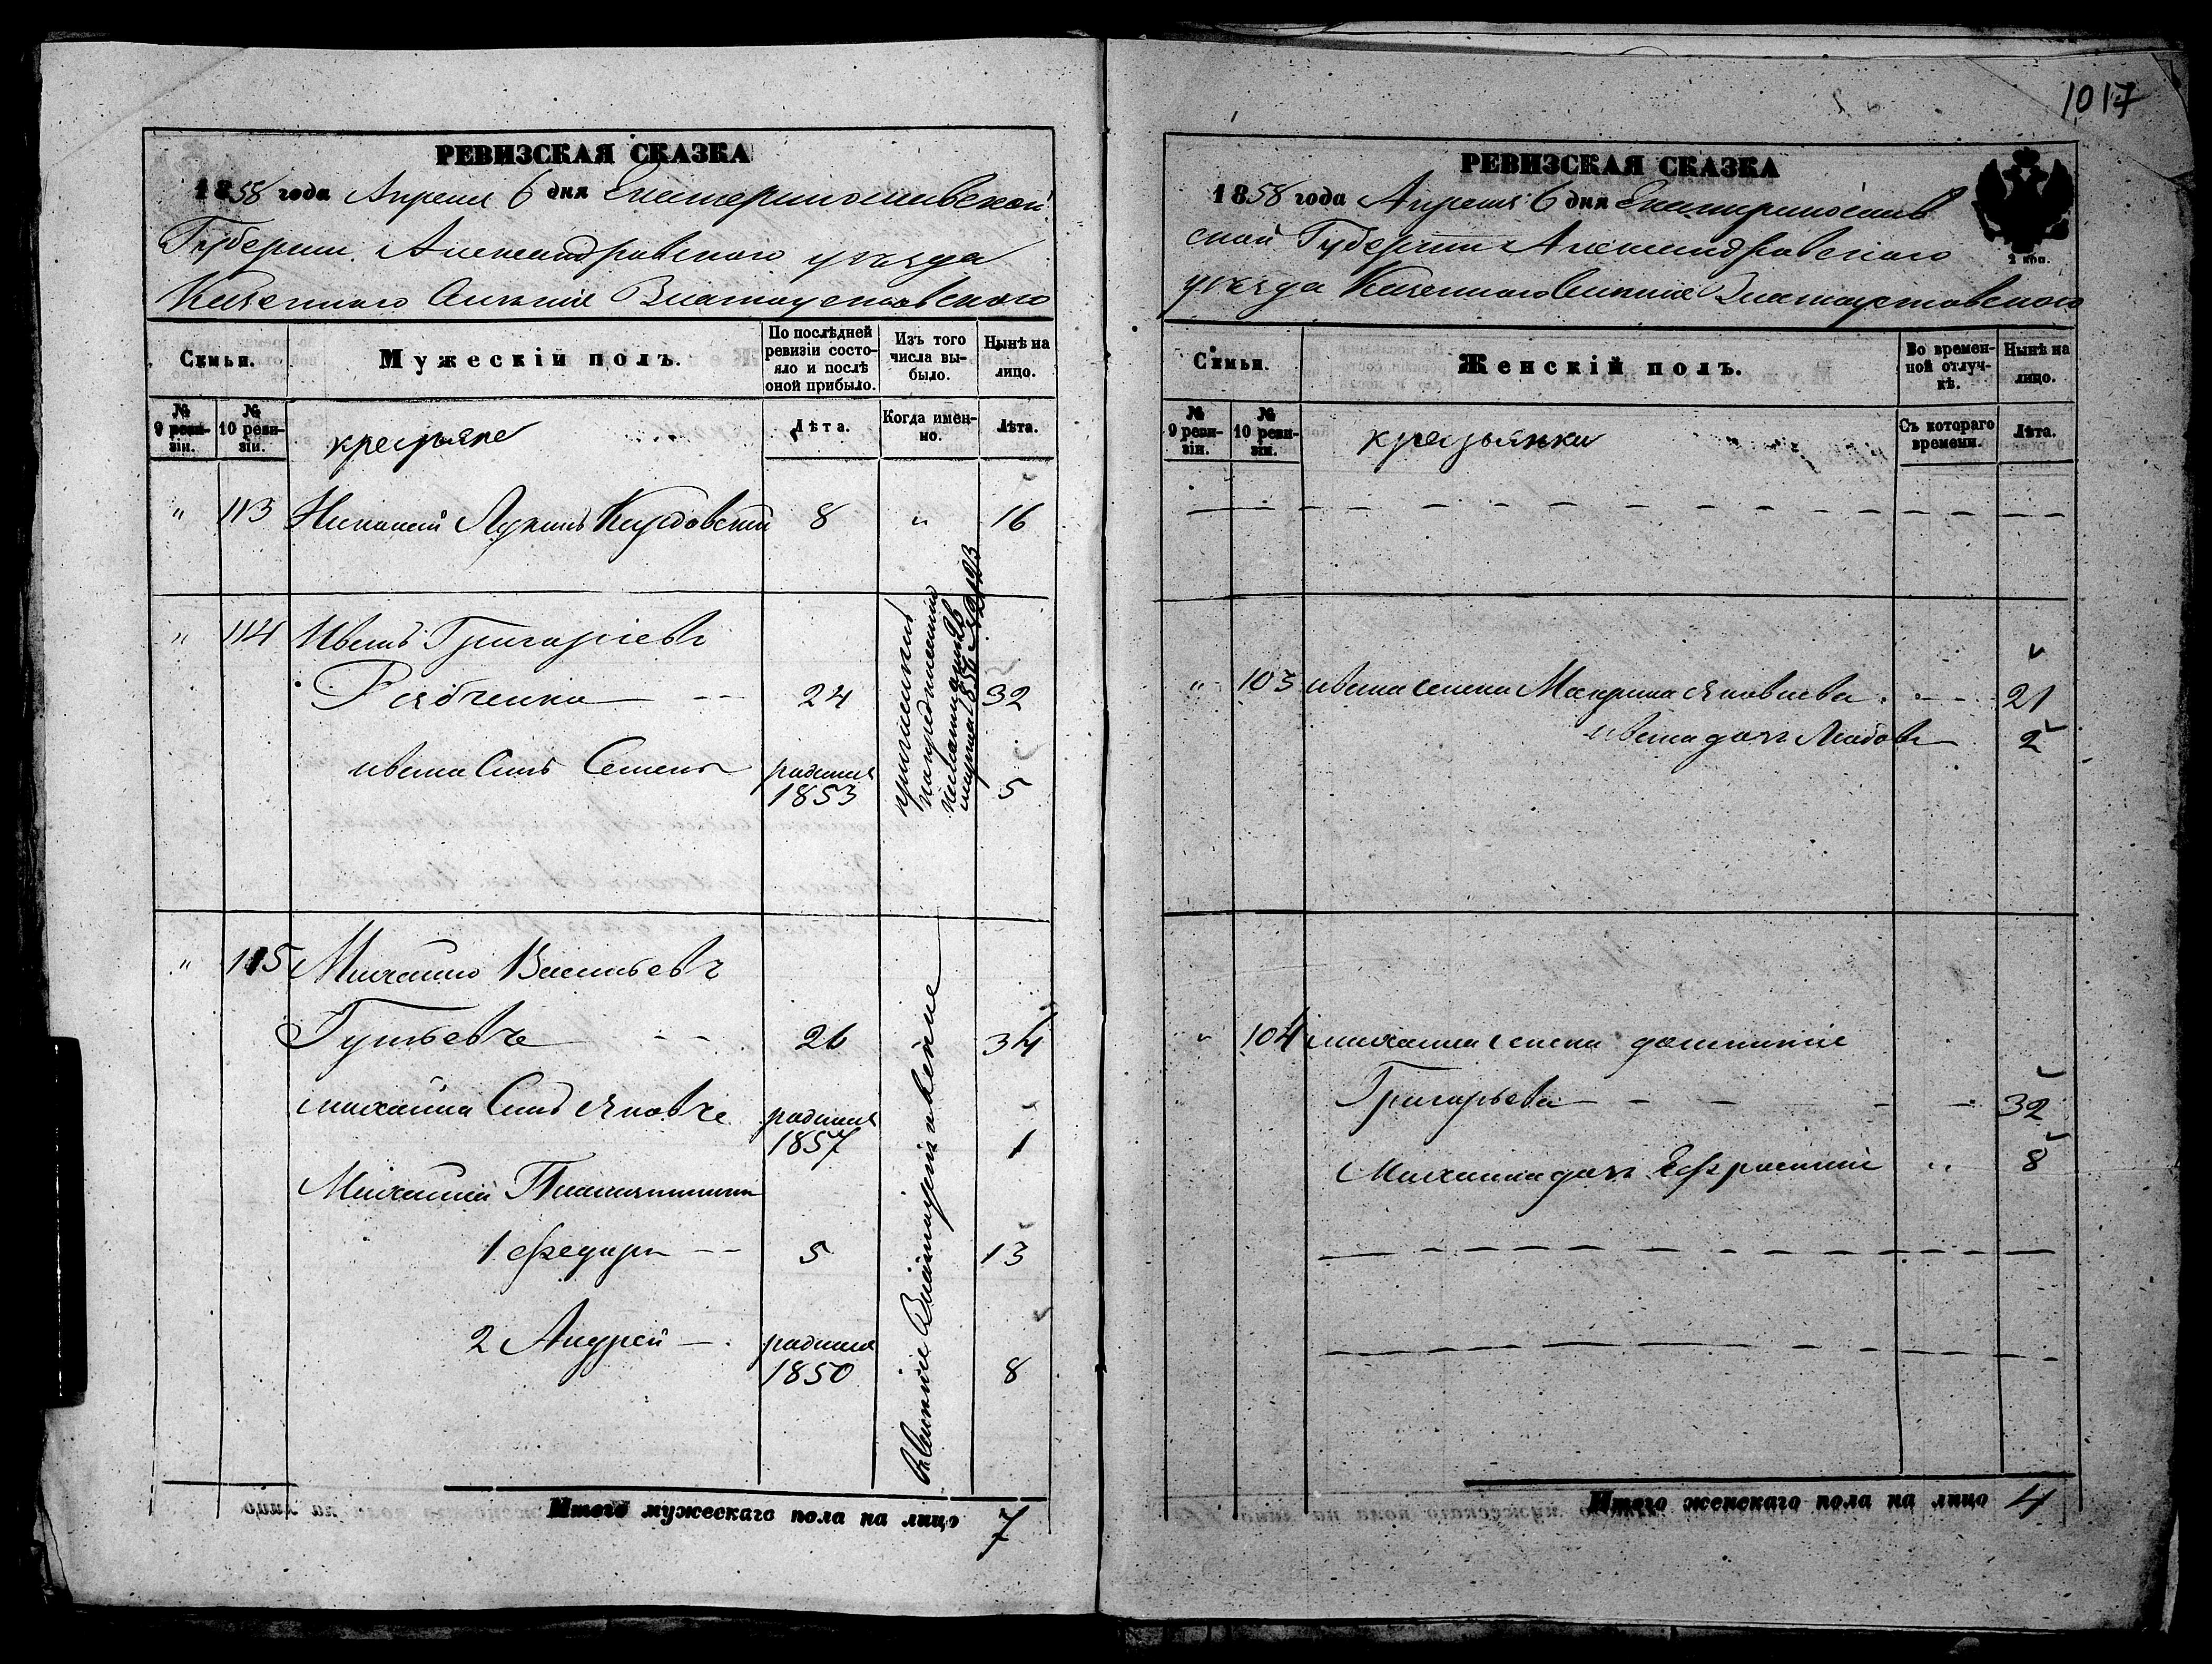 РЕВИЗСКАЯ СКАЗКА
1858 года Апреля 6 дня Екатеринославской
Губернии Александровского уезда
Казенного Селения Златоустовского
Семьи.
Мужескій полъ.
По послѣдней ревизіи состояло и послѣ оной прибыло.
Изъ того числа выбыло.
Нынѣ на лицо.
№ 9 ревизіи.
№ 10 ревизіи.
крестьяне
Лѣта.
Когда именно.
Лѣта.
" 113 Лукинъ 8 " 16
" 114 Иванъ Григоріевъ
Рябченко 24 32
ивана Сынъ Семенъ родился 1853 5
" 115 Михайло Васильевъ
Гутьевъ 26 34
михайла Сынъ Яковъ родился 1857 1
Михайлы
1 Федоръ 5 13
2 Андрей родился 1850 8
причислены
по предписанію
Итого мужескаго пола на лицо 7
1017
РЕВИЗСКАЯ СКАЗКА
1858 года Апреля 6 дня Екатеринослав
ской Губернии Александровского
уезда Казенного Селения Златоустовского
2 коп.
Семьи.
Женскій полъ.
Во временной отлучкѣ.
Нынѣ на лицо.
№ 9 ревизіи.
№ 10 ревизіи.
крестьянки
Съ котораго времени.
Лѣта.
" 103 ивана жена Макрина Яковлева 21
ивана дочь Любовь 2
" 104 михайла жена
Григорьева 32
Михайла дочь Ефросиния " 8
Итого женскаго пола на лицо 4